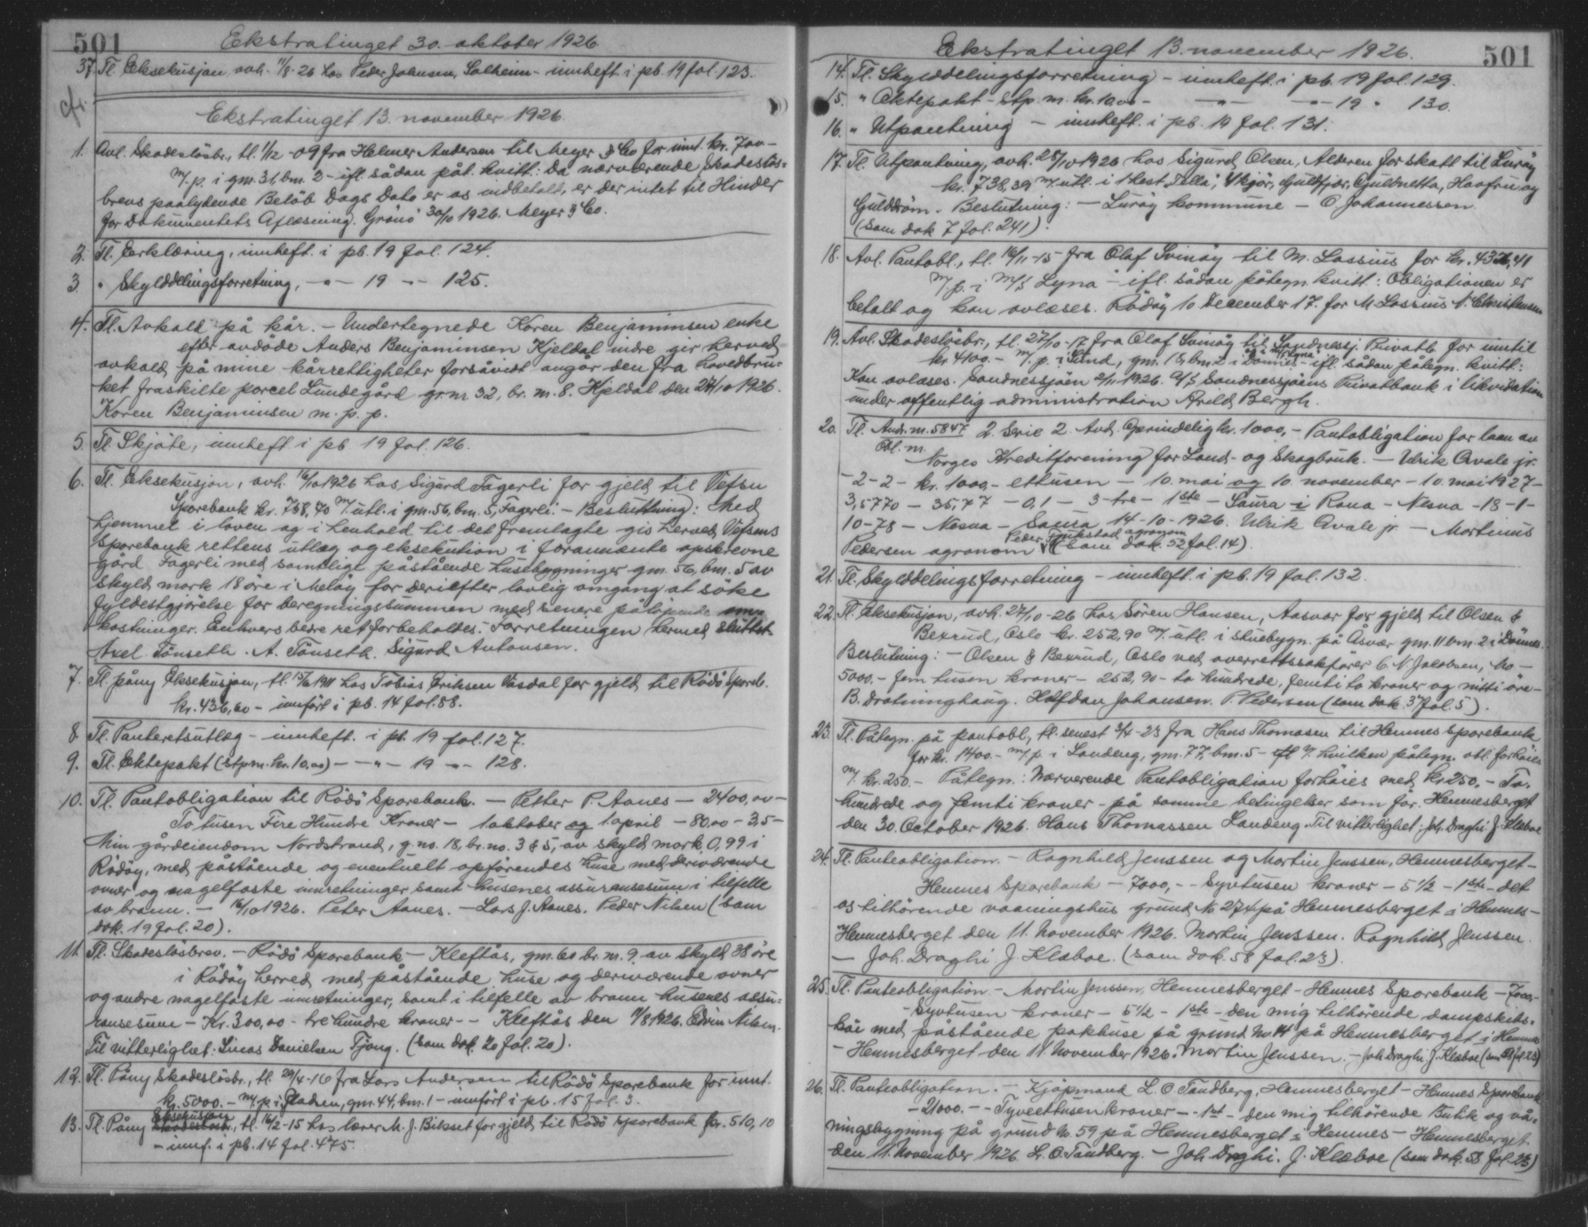 501
Ekstratinget 30. oktober 1926
37. Tl. Eksekusjon avh. 11/8-26 hos Peder Johnsen, Solheim - innheft i pb. 19 fol. 123.
Ekstratinget 13. november 1926
1. Avl. Skadeslösbr., tl. 1/12-09 fra Helmer Andersen til Meyer & Co for innt. kr. 700-
m/p. i gm. 31, bm. 2 - ifl. sådan påt. kvitt: Da nærværende Skadeslös-
brevs paalydende Belöb Dags Dato er os indbetalt, er der intet til Hinder
for Dokumentets Aflæsning. Grönö 30/10 1926. Meyer & Co.
2. Tl. Erklæring, innheft. i pb. 19 fol. 124.
3. " Skylddelingsforretning, - " - 19 - " - 125.
4. Tl. Avkall på kår. - Undertegnede Karen Benjaminsen enke
efter avdöde Anders Benjaminsen Kjeldal indre gir herved
avkald på mine kårrettigheter forsåvidt angår den fra hovedbru-
ket fraskilte parcel Lundegård gr.nr 32, br. nr. 8. Kjeldal den 24/10 1926.
Karen Benjaminsen m. p. p.
5. Tl. Skjöte, innheft i pb 19 fol. 126.
6. Tl. Eksekusjon, avh. 16/10 1926 hos Sigurd Fagerli for gjeld til Vefsn
Sparebank kr. 738,40 m/utl. i gm. 56, bm. 5, Fagerli. - Beslutning: Med
hjemmel i loven og i henhold til det fremlagte gis herved Vefsns
Sparebank rettens utlæg og eksekution i foranævnte opskrevne
gård Fagerli med samtlige påstående husebygninger gm. 56, bm. 5 av
skyld mark 18 öre i Melöy for derefter lovlig omgang at söke
fyldestgjörelse for beregningssummen med senere påløpende om-
kostninger. Enhvers bedre ret forbeholdes. Forretningen hermed sluttet
Axel Tönseth. A. Tönseth. Sigurd Antonsen.
7. Tl. påny Eksekusjon, tl. 15/6 1911 hos Tobias Eriksen Vasdal for gjeld til Rödö Spareb.
kr. 436,60 - innfört i pb. 14 fol. 88.
8. Tl. Panteretsutlæg - innheft. i pb. 19 fol. 127.
9. Tl. Ektepakt (stp.m. kr. 10.00) - - " - 19 - " - 128.
10. Tl. Pantobligation til Rödö Sparebank. - Petter P. Aanes - 2400,00 -
To tusen Fire Hundre Kroner - 1 oktober og 1 april - 80,00 - 3,5 -
Min gårdeiendom Nordstrand, g. no. 18, br. no. 3 & 5, av skyld mark 0,99 i
Rödöy, med påstående og eventuelt opförendes huse med derværende
ovner og nagelfaste innretninger samt husenes assuransesum i tilfelle
av brann. - 16/10 1926. Peter Aanes. - Lars J. Aanes. Peder Nilsen (som
dok. 19 fol. 20).
11. Tl. Skadeslösbrev. - Rödö Sparebank - Kleftås, gm. 60 br. nr. 9. av skyld 38 öre
i Rödöy herred med påstående huse og derværende ovner
og andre nagelfaste innretninger, samt i tilfelle av brann husenes assu-
ransesum - Kr. 300,00 - tre hundre kroner - - Kleftås den 11/8 1926. Edvin Nilsen.
Til vitterlighet: Lucas Danielsen Tjong. (som dok. 20 fol. 20).
12. Tl. Påny Skadeslösbr., tl. 29/4-16 fra Lars Andersen til Rödö Sparebank for innt.
kr. 5000. - m/p. i Staden, gm. 44, bm. 1 - innfört i pb. 15 fol. 3.
13. Tl. Påny Eksekusjon, tl. 14/2-15 hos lærer M. J. Bitsset for gjeld til Rödö Sparebank kr. 510,10
- innf. i pb. 14 fol. 475.
Ekstratinget 13. november 1926.
501
14. Tl. Skylddelingsforretning - innheft. i pb. 19 fol. 129.
15. " Ektepakt - stp. m. kr. 10.00 - - " - - " - 19 " 130.
16. " Utpantning - innheft. i pb. 19 fol. 131.
17. Tl. Utpantning, avh. 25/10 1926 hos Sigurd Olsen, Alderen for skatt til Luröy
kr. 738,39 m/utl. i 1 hest "Lilla", 4 kjör, Guldfjær, Guldnetta, Haafru og
Gulddröm. Beslutning: - Luröy kommune - O. Johannessen
(som dok 7 fol. 241).
18. Avl. Pantobl., tl. 16/11-15 fra Olaf Svinöy til M. Lassius for kr. 4326,41
m/p. i m/s Lyna - ifl. sådan påtegn. kvitt: Obligationen er
betalt og kan avlæses. Rödöy 10 December 17. for M. Lassius A. Christensen
19. Avl. Skadeslösbr., tl. 27/10-17 fra Olaf Svinöy til Sandnessj. Privatb. for inntil
kr. 4100. - m/p. i Sund, gm. 18, bm. 2 i Dönnes - ifl. sådan påtegn. kvitt:
Kan avlæses. Sandnessjöen 2/11 1926. A/S Sandnessjöens Privatbank i likvidation
under offentlig administration Arvild Bergh.
20. Tl. Avd. nr. 5847 2 Serie 2 Avd. Oprindelig kr. 1000,- Pantobligation for laan av
Obl. nr.
Norges Kreditforening for Land- og Skogbruk. - Ulrik Qvale jr.
- 2 - 2 - kr. 1000,- ettusen - 10 mai og 10 november - 10 mai 1927 -
3,5770 - 35,77 - 0,1 - 3 - tre - 1ste - Saura i Rana - Nesna - 18 - 1 -
10 - 78 - Nesna - Saura 14-10-1926. Ulrik Qvale jr - Mortinus
Pedersen agronom (som dok. 52 fol. 14).
21. Tl. Skylddelingsforretning - innheft. i pb. 19 fol. 132.
22. Tl. Eksekusjon, avh. 27/10-26 hos Sören Hansen, Aasvær for gjeld til Olsen &
Bexrud, Oslo kr. 252,90 m/ utl. i skiebygn. på Åsvær gm. 11 bm. 2 i Dönnes.
Beslutning: - Olsen & Bexrud, Oslo ved overrettssakförer C. N. Jakobsen, Mo -
5000.- fem tusen kroner - 252,90 - to hundrede, femti to kroner og nitti öre -
B. Drotninghaug. Halfdan Johansen. P. Pedersen (som dok. 37 fol. 5).
23. Tl. Påtegn. på pantobl., tl. senest 3/4-23 fra Hans Thomasen til Hemnes Sparebank
for kr. 1400.- m/p. i Landeng, gm. 77, bm. 5 - ifl. hvilken påtegn. obl. forhöies
m/ kr. 250.- Påtegn: Nærværende Pantobligation forhöies med kr 250,- To-
hundrede og femti kroner - på samme betingelser som för. Hemnesberget
den 30. October 1926. Hans Thomassen Landeng. Til vitterlighet: Joh. Draghi J. Klæboe
24. Tl. Panteobligation. - Ragnhild Jenssen og Martin Jenssen, Hemnesberget -
Hemnes Sparebank - 7000,- - Syvtusen kroner - 5 1/2 - 1ste - det
os tilhörende vaaningshus grund No 274 på Hemnesberget i Hemnes -
Hemnesberget den 11. November 1926. Martin Jenssen. Ragnhild Jenssen.
- Joh. Draghi J. Klæboe. (som dok. 58 fol. 23).
25. Tl. Panteobligation - Martin Jenssen, Hemnesberget - Hemnes Sparebank - 7000-
- Syvtusen kroner - 5 1/2 - 1ste - den mig tilhörende dampskibs-
kai med påstående pakhuse på grund No 14 på Hemnesberget i Hemnes
- Hemnesberget den 11 November 1926. Martin Jenssen. - Joh. Draghi. J. Klæboe (som 58 fol. 23)
26. Tl. Panteobligation. - Kjöpmand L. O. Tandberg, Hemnesberget - Hemnes Sparebank
- 21000.- - Tyveettusen kroner - - 1ste - den mig tilhörende Butik og vå-
ningsbygning på grund No. 59 på Hemnesberget i Hemnes - Hemnesberget
den 11. November 1926. L. O. Tandberg. - Joh. Draghi. J. Klæboe (som dok. 58 fol. 23)